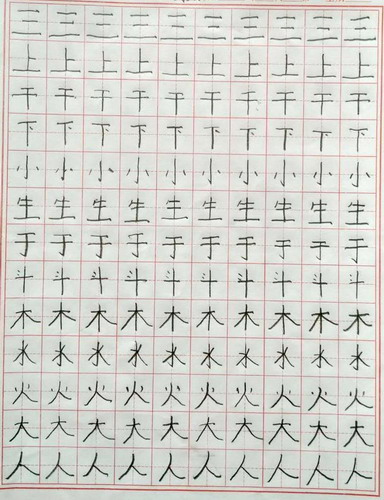 三三三三三三三三三三
上上上上上上上上上上
干干干干干干干干干干
下下下下下下下下下下
小小小小小小小小小小
生生生生生生生生生生
于于于于于于于于于于
斗斗斗斗斗斗斗斗斗斗
木木木木木木木木木木
水水水水水水水水水水
火火火火火火火火火火
大大大大大大大大大大
人人人人人人人人人人